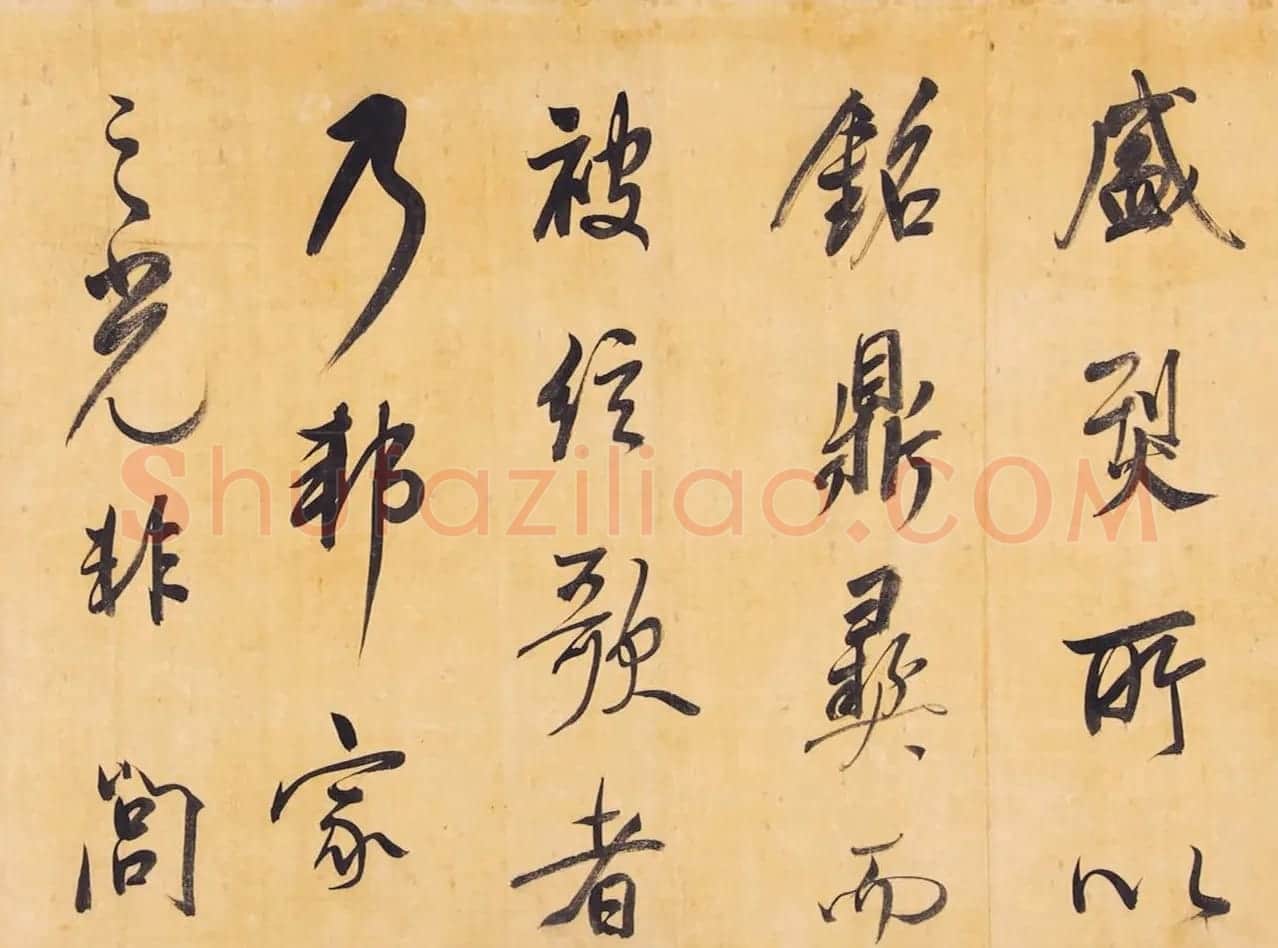 盛烈所以
銘鼎彝而
被弦歌者
乃邦家
之光非閭
Shufaziliao.COM